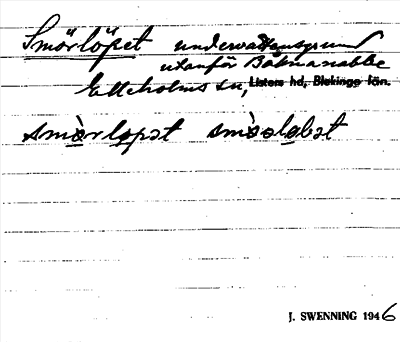 Smörlöpet undervattensgrund
utanför Bökmanabbe
Elleholms sn, Listers hd, Blekinge län.
smö̀rlo̤pət smo̤
J. SWENNING 1946